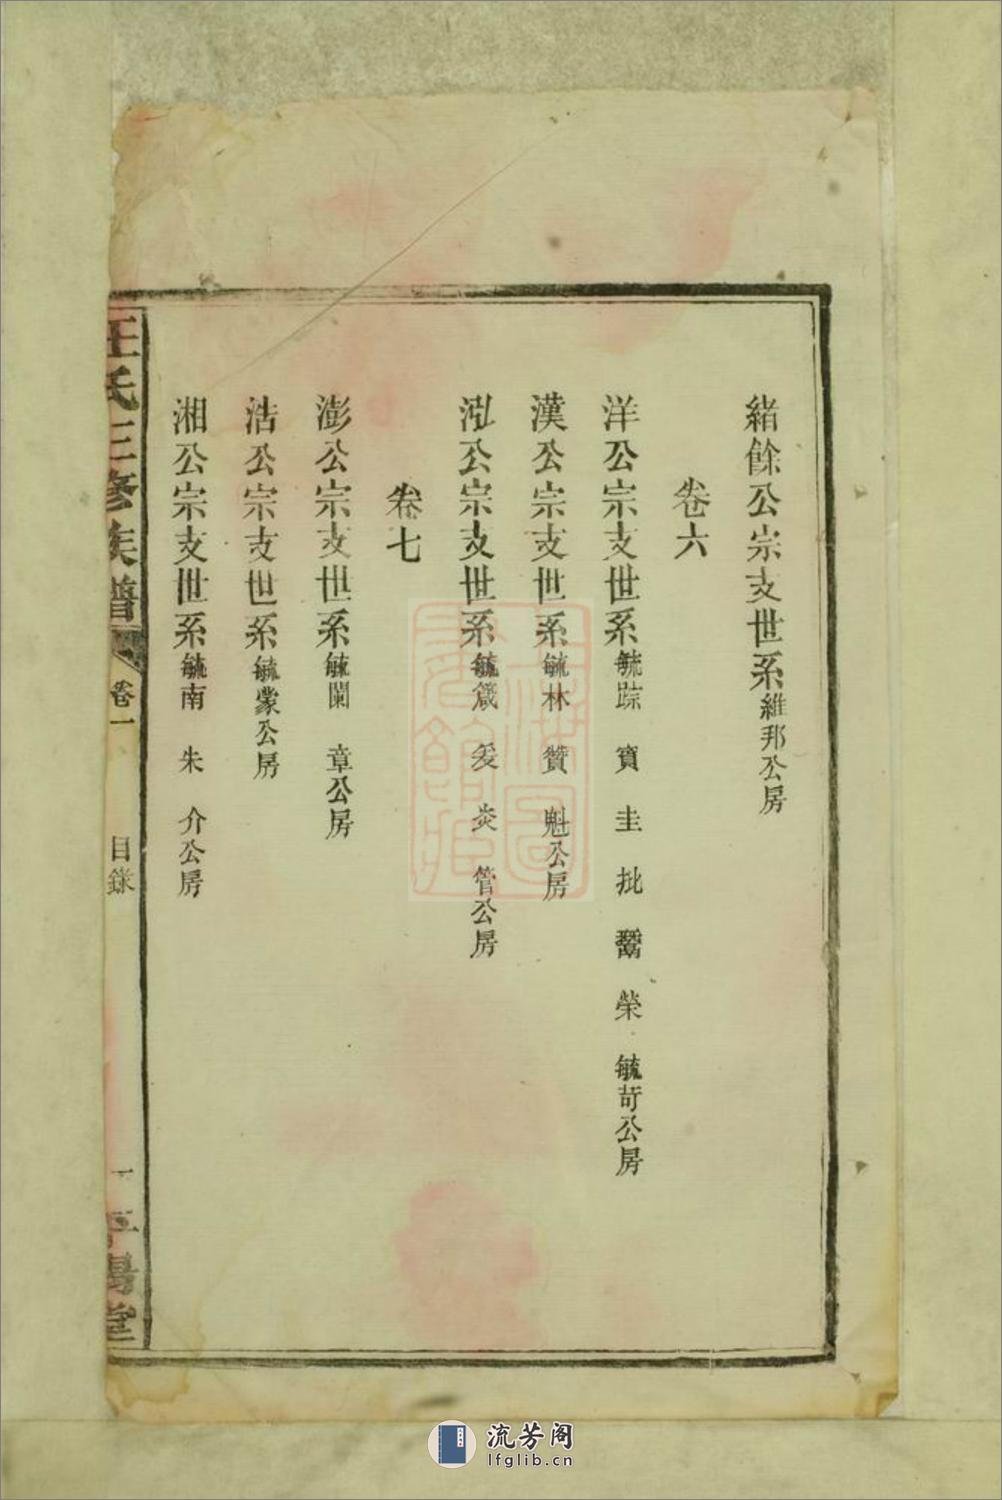 緒餘公宗支世系維邦公房
卷六
洋公宗支世系毓踪 寳 圭 批 榮 毓苛公房
漢公宗支世系毓林 贊 魁公房
泓公宗支世系毓箴 爰 炎 管公房
卷七
澎公宗支世系毓闌 章公房
浩公宗支世系毓蒙公房
湘公宗支世系毓南 朱 介公房
王氏三修族譜 卷一 目錄 一 堂
流芳阁
lfglib.cn